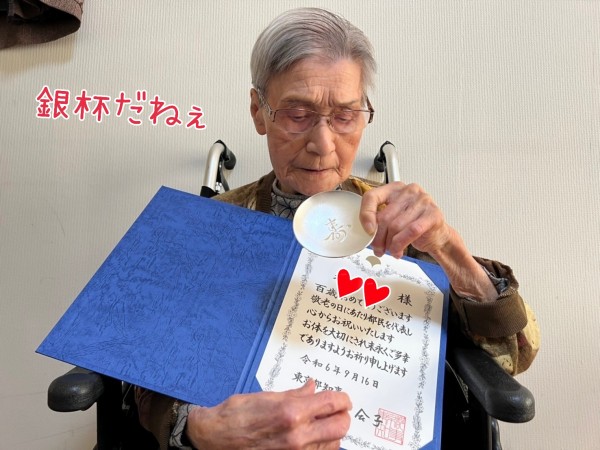 銀杯だねぇ
寿
様
百歳おめでとうございます
敬老の日にあたり都民を代表し
心からお祝いいたします
お体を大切にされ末永くご多幸
でありますようお祈り申し上げます
令和6年9月16日
東京都知事
公子